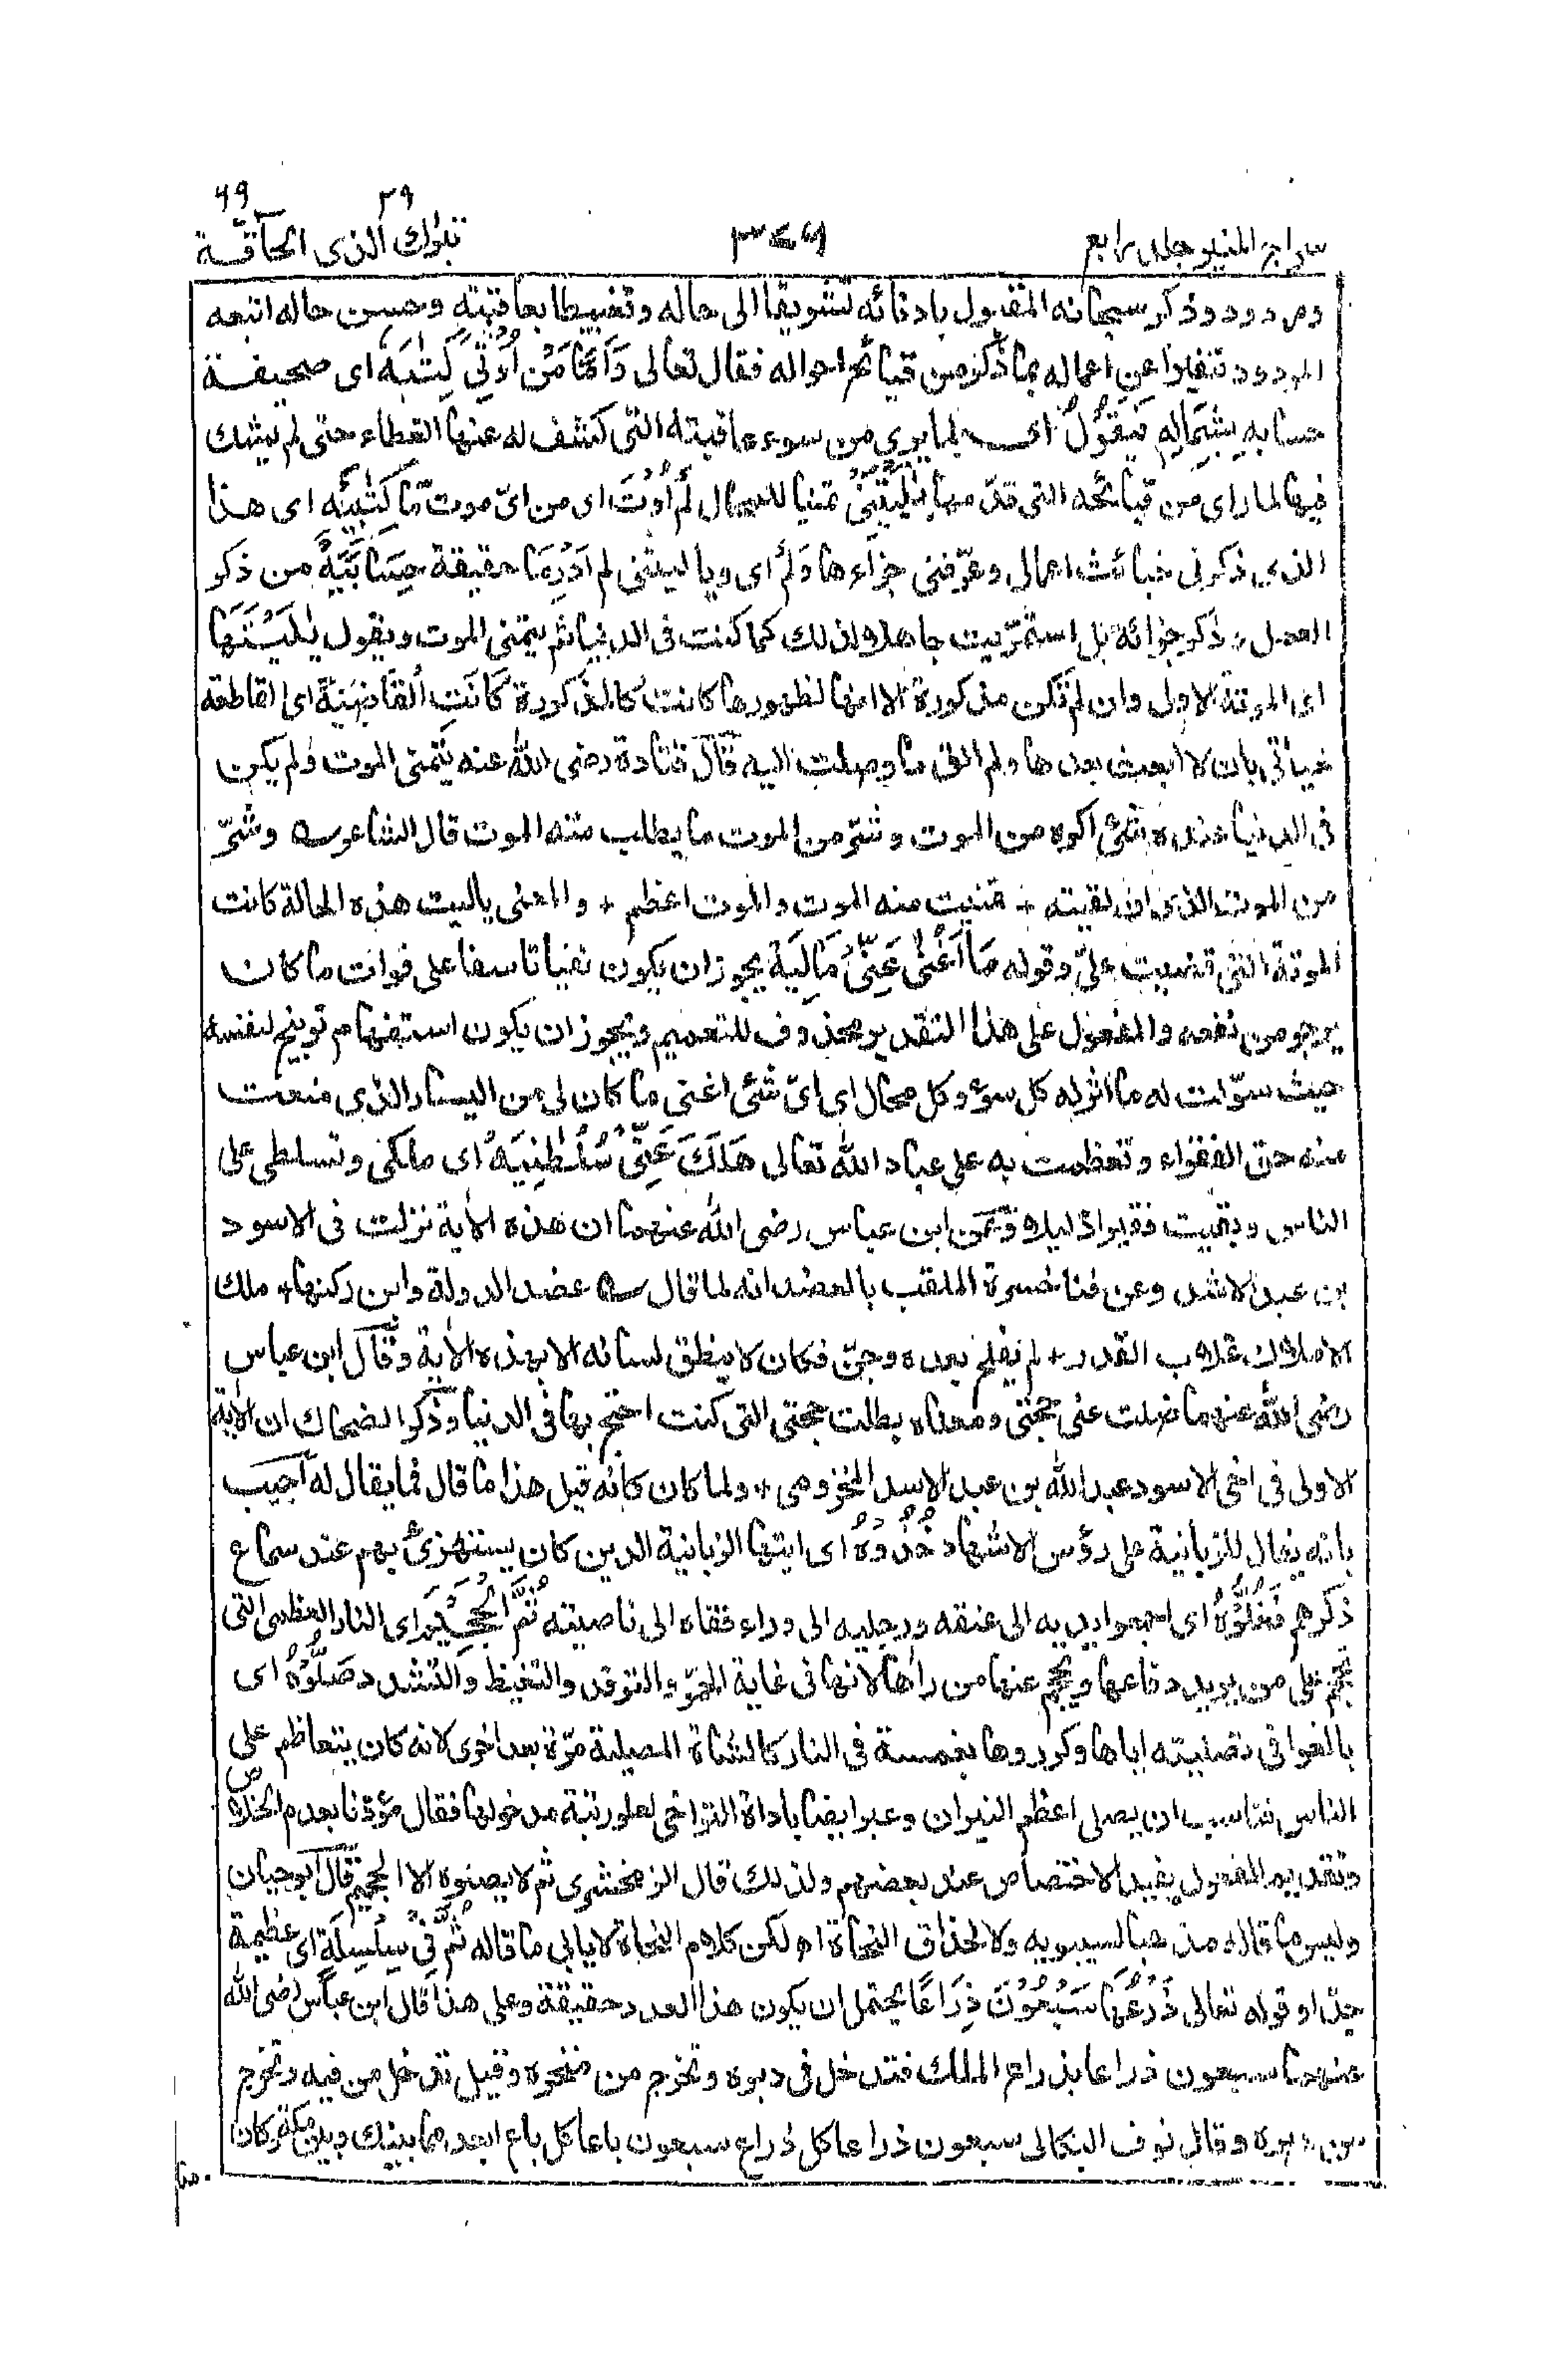 سراج المنير جلد رابع
٣٧٦
٢٩
تبرك الذى
٦٩
الحآقة
ومردود وذكر سبحانه المقبول بادئائه تشويقا الى حاله وتغبيطا بعاقبته وحسن حاله اتبعه
المردود تنفيرا عن اعماله بما ذكر من قبائح احواله فقال تعالى وَاَمَّا مَنْ اُوْتِيَ كِتٰبَهٗ اى صحيفة
حسابه بِشِمَالِهٖ فَيَقُوْلُ اى لما يرى من سوء عاقبته التى كشف له عنها الغطاء حتى لم يشك
فيها لما راى من قبائحه التى قدّمها يٰلَيْتَنِيْ تمنيا للمحال لَمْ اُوْتَ اى من اىّ موت ما كِتٰبِيَهْ اى هذا
الذى ذكرنى خبائث اعمالى وعرّفنى جزاءها وَلَمْ اى ويا ليتنى لم اَدْرِ مَا حقيقة حِسَابِيَهْ من ذكر
العمل وذكر جزائه بل استمرّيت جاهلا لذلك كما كنت فى الدنيا ثم يتمنى الموت ويقول يٰلَيْتَهَا
اى الموتة الاولى وان لم تكن مذكورة الا انها لظهورها كانت كالمذكورة كَانَتِ الْقَاضِيَةَ اى القاطعة
لحياتى بان لا ابعث بعدها ولم الق ما وصلت اليه قال قتادة رضى الله عنه يتمنى الموت ولم يكن
فى الدنيا عنده شئ اكره من الموت وشرّ من الموت ما يطلب منه الموت قال الشاعر وشرّ
من الموت الذى ان لقيته + تمنيت منه الموت والموت اعظم + والمعنى ياليت هذه الحالة كانت
الموتة التى قضيت علىّ وقوله مَآ اَغْنٰى عَنِّيْ مَالِيَهْ يجوز ان يكون نفيا تاسفا على فوات ما كان
يرجو من نفعه والمفعول على هذا التقدير محذوف للتعميم ويجوز ان يكون استفهام توبيخ لنفسه
حيث سوّلت له ما اثر له كل سوء وكل محال اى اىّ شئ اغنى ما كان لى من اليسار الذى منعت
منه حق الفقراء وتعظمت به على عباد الله تعالى هَلَكَ عَنِّيْ سُلْطٰنِيَهْ اى ملكى وتسلطى على
الناس وبقيت فقيرا ذليلا وعن ابن عباس رضى الله عنهما ان هذه الاٰية نزلت فى الاسود
بن عبد الاشد وعن فنا خسرة الملقب بالعضد انه لما قال عضد الدولة وابن ركنها + ملك
الاملاك غلاب القدر + لم يفلح بعده وجنّ فكان لا ينطلق لسانه الا بهذه الاٰية وقال ابن عباس
رضى الله عنهما ضلت عنى حجتى ومعناه بطلت حجتى التى كنت احتج بها فى الدنيا وذكر الضحاك ان الاٰية
الاولى فى اخى الاسود عبد الله بن عبد الاسد المخزومى + ولما كان كانه قيل هذا ما قال فما يقال له اجيب
بانه يقال للزبانية على رؤس الاشهاد خُذُوْهُ اى ايتها الزبانية الذين كان يستهزئ بهم عند سماع
ذكرهم فَغُلُّوْهُ اى اجمعوا يديه الى عنقه ورجليه الى وراء قفاه الى ناصيته ثُمَّ الْجَحِيْمَ اى النار العظمى التى
تجحم على من يريد دفاعها ويحجم عنها من راٰها لانها فى غاية الحرّ والتوقد والتغيظ والتشدد صَلُّوْهُ اى
بالغوا فى تصليته اياها وكرروها بغمسة فى النار كالشاة المصلية مرّة بعد اخرى لانه كان يتعاظم على
الناس فناسب ان يصلى اعظم النيران وعبر ايضا باداة التراخى لعلو رتبة مدخولها فقال مؤذنا بعدم الخلاص
وتقديم المفعول يفيد الاختصاص عند بعضهم ولذلك قال الزمخشرى ثم لا يصلوه الا الجحيم قال ابو حيان
وليس ما قاله مذهبا لسيبويه ولا لحذاق النحاة اه لكن كلام النحاة لا يابى ما قاله ثُمَّ فِيْ سِلْسِلَةٍ اى عظيمة
جدّا وقوله تعالى ذَرْعُهَا سَبْعُوْنَ ذِرَاعًا يحتمل ان يكون هذا العدد حقيقة وعلى هذا قال ابن عباس رضى الله
عنهما سبعون ذراعا بذراع الملك فتدخل فى دبره وتخرج من منخره وقيل تدخل من فيه وتخرج
من دبره وقال نوف البكالى سبعون ذراعا كل ذراع سبعون باعا كل باع ابعد مما بينك وبين مكة وكان